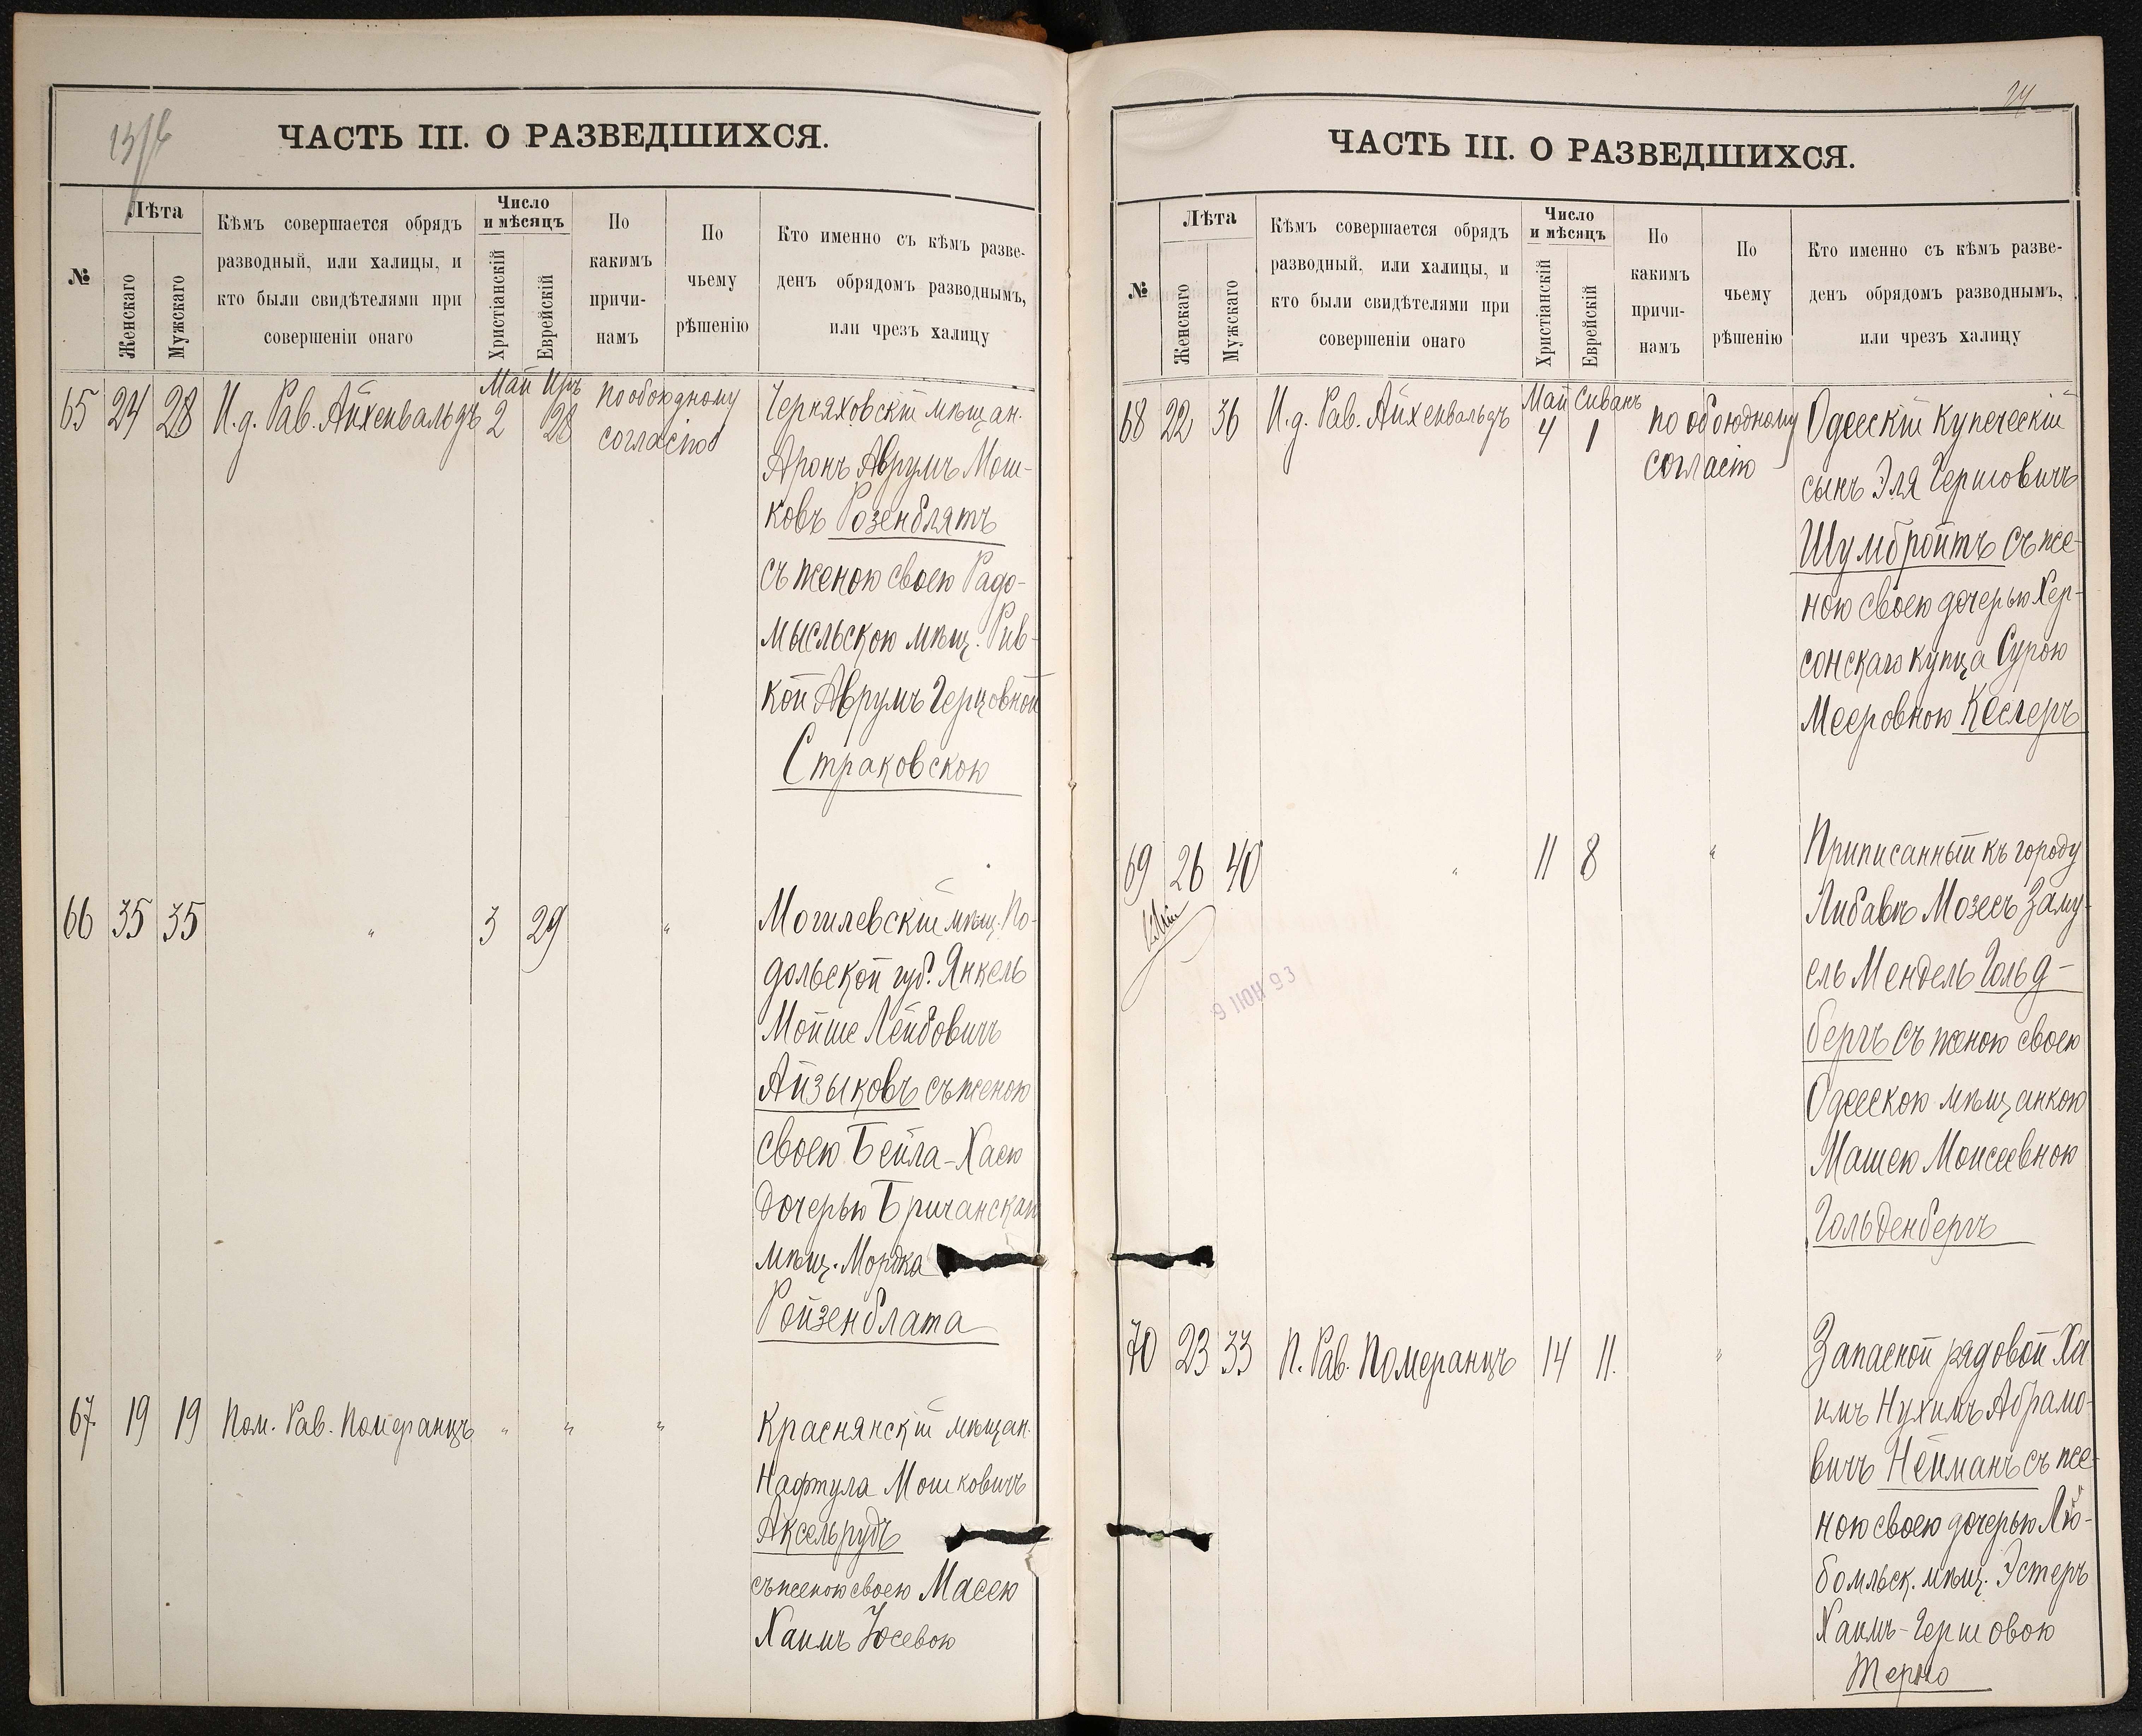 13/6
ЧАСТЬ III. О РАЗВЕДШИХСЯ.
№
Лѣта
Женскаго
Мужскаго
Кѣмъ совершается обрядъ
разводный, или халицы, и
кто были свидѣтелями при
совершеніи онаго
Число
и мѣсяцъ
Христіанскій
Еврейскій
По
какимъ
причи-
намъ
По
чьему
рѣшенію
Кто именно съ кѣмъ разве-
денъ обрядомъ разводнымъ,
или чрезъ халицу
65 24 28 И.д. Рав. Айхенвальдъ
Май Иръ
2 28
по обоюдному
согласію
Черняховскій мѣщан.
Аронъ Аврумъ Мош-
ковъ Розенблятъ
съ женою своею Радо-
мысльскою мѣщ. Рив-
кой Аврумъ Герцовной
Страковскою
66 35 35 " 3 29 "
Могилевскій мѣщ. По-
дольской губ. Янкель
Мойше Лейбовичъ
Айзыковъ съ женою
своею Бейла-Хаею
дочерью Бричанскаго
мѣщ. Мордка
Ройзенблата
67 19 19 Пом. Рав. Померанцъ " " "
Краснянскій мѣщан.
Нафтула Мошковичъ
Аксельрудъ
съ женою своею Масею
Хаимъ Юсевою
24
ЧАСТЬ III. О РАЗВЕДШИХСЯ.
№
Лѣта
Женскаго
Мужскаго
Кѣмъ совершается обрядъ
разводный, или халицы, и
кто были свидѣтелями при
совершеніи онаго
Число
и мѣсяцъ
Христіанскій
Еврейскій
По
какимъ
причи-
намъ
По
чьему
рѣшенію
Кто именно съ кѣмъ разве-
денъ обрядомъ разводнымъ,
или чрезъ халицу
68 22 36 И.д. Рав. Айхенвальдъ
Май Сиванъ
4 1
по обоюдному
согласію
Одесскій купеческій
сынъ Эля Гершовичъ
Шумбройтъ съ же-
ною своею дочерью Хер-
сонскаго купца Сурою
Мееровною Кеслеръ
69 26 40 " 11 8 "
9 ІЮН 93
Приписанный къ городу
Либавѣ Мозесъ Заму-
ель Мендель Гольд-
бергъ съ женою своею
Одесскою мѣщанкою
Машею Моисеевною
Гольденбергъ
70 23 33 П. Рав. Померанцъ 14 11. "
Запасной рядовой Ха
имъ Нухимъ Абрамо-
вичъ Нейманъ съ же-
ною своею дочерью Лю-
бомльск. мѣщ. Эстеръ
Хаимъ-Гершовою
Терно